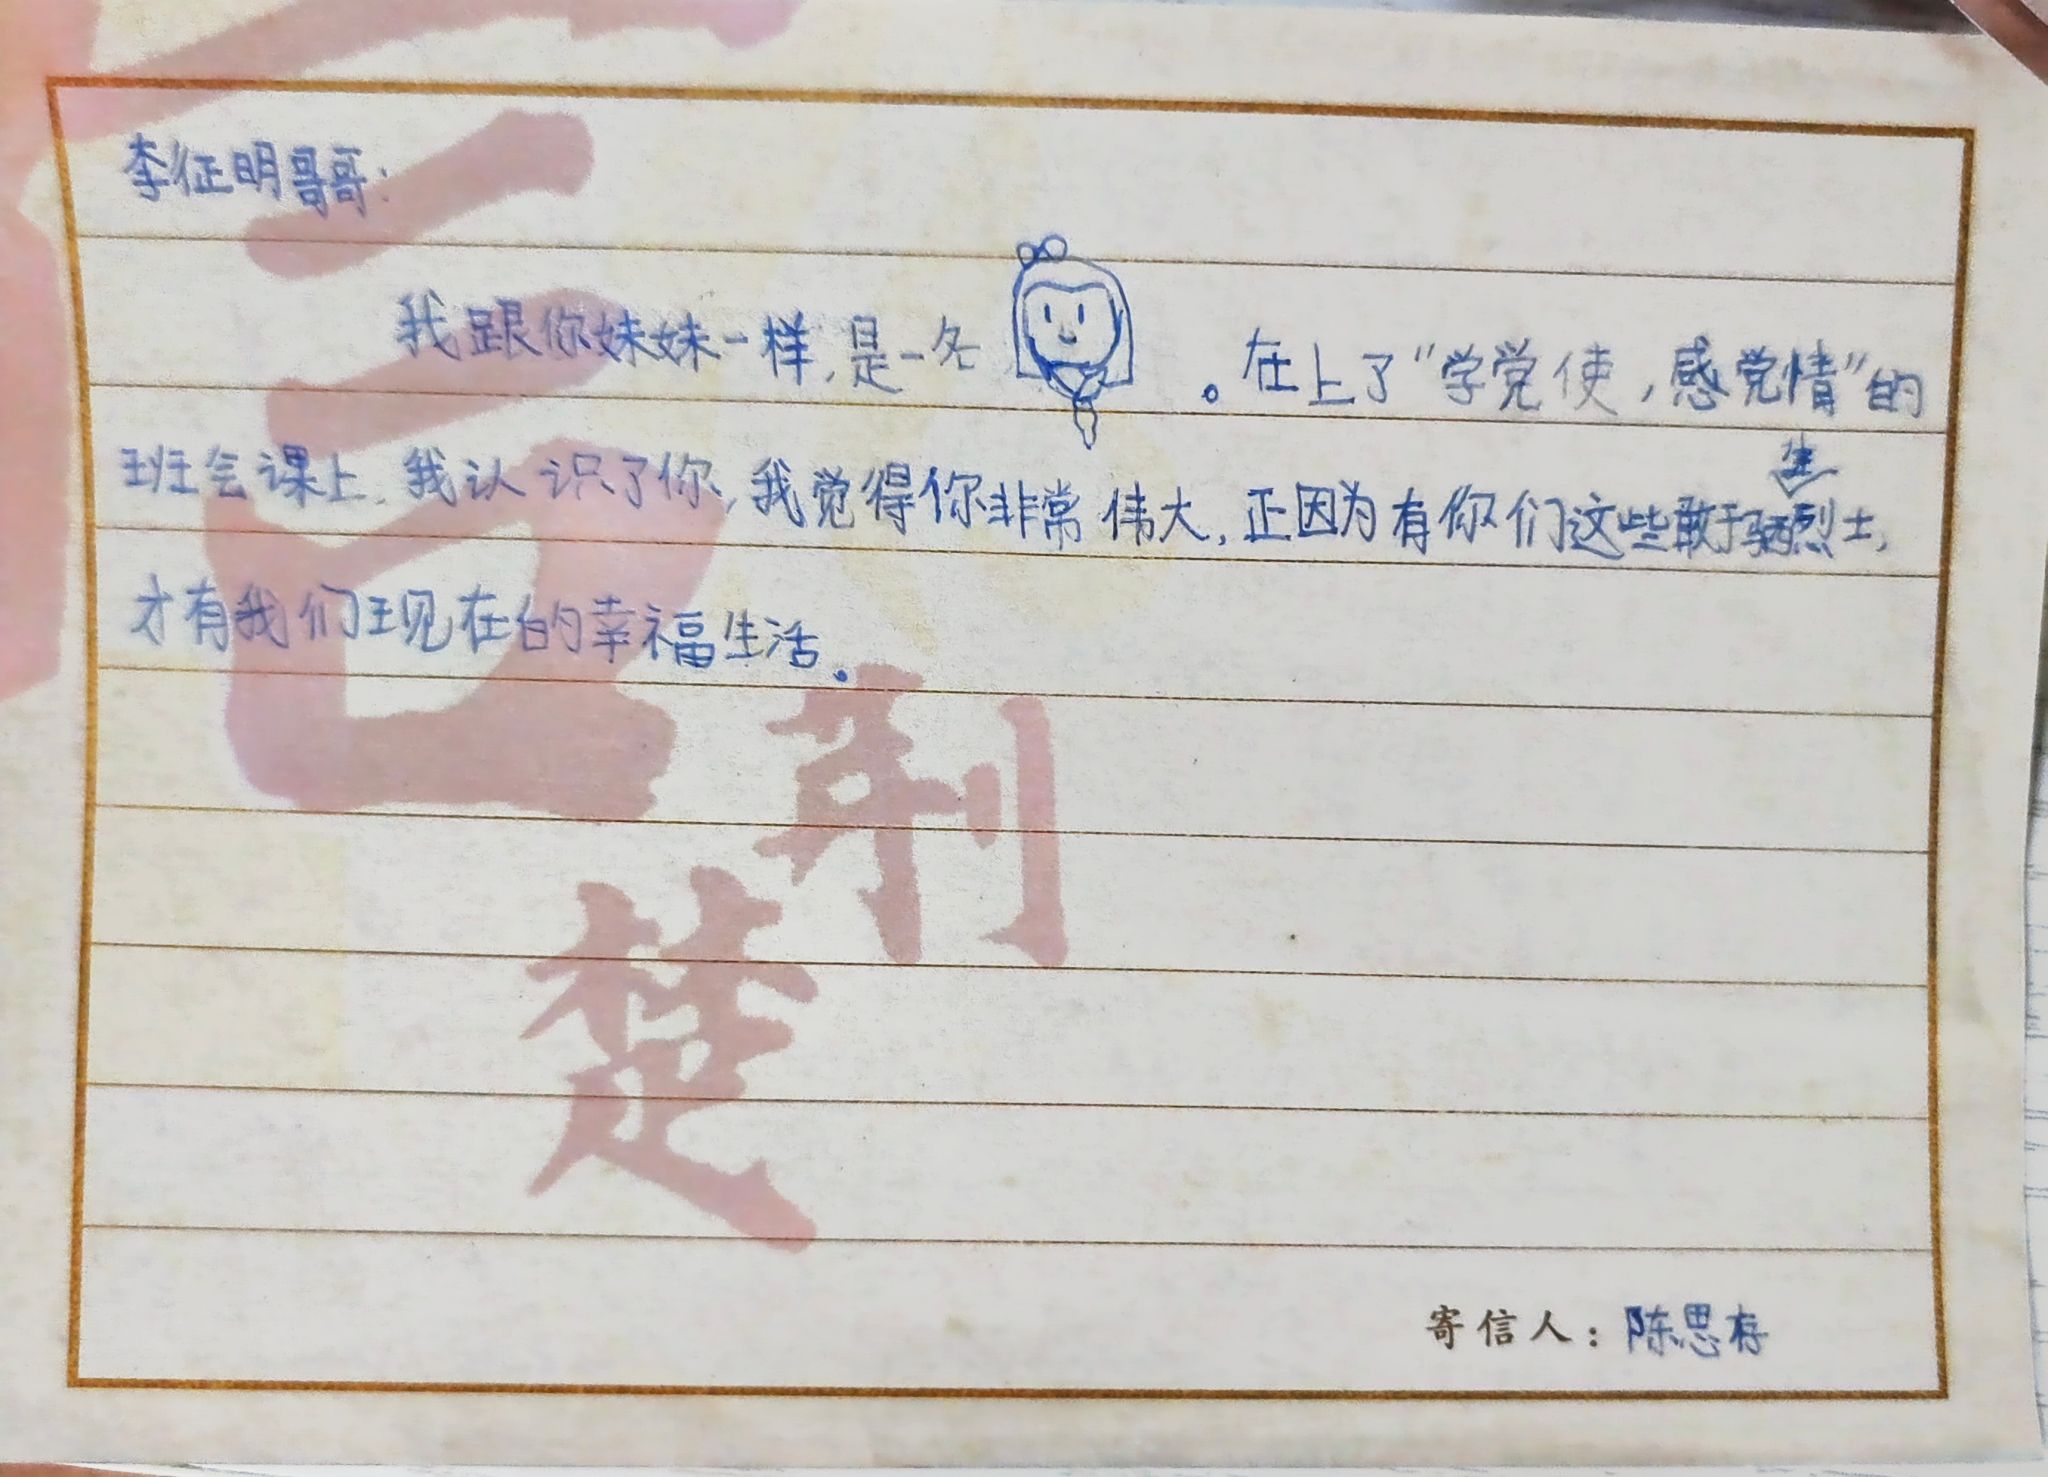 李征明哥哥：
我跟你妹妹一样，是一名。在上了“学党使，感党情”的
班会课上，我认识了你，我觉得你非常伟大，正因为有你们这些敢于牺牲烈士，
才有我们现在的幸福生活。
荆
楚
寄信人：陈思存